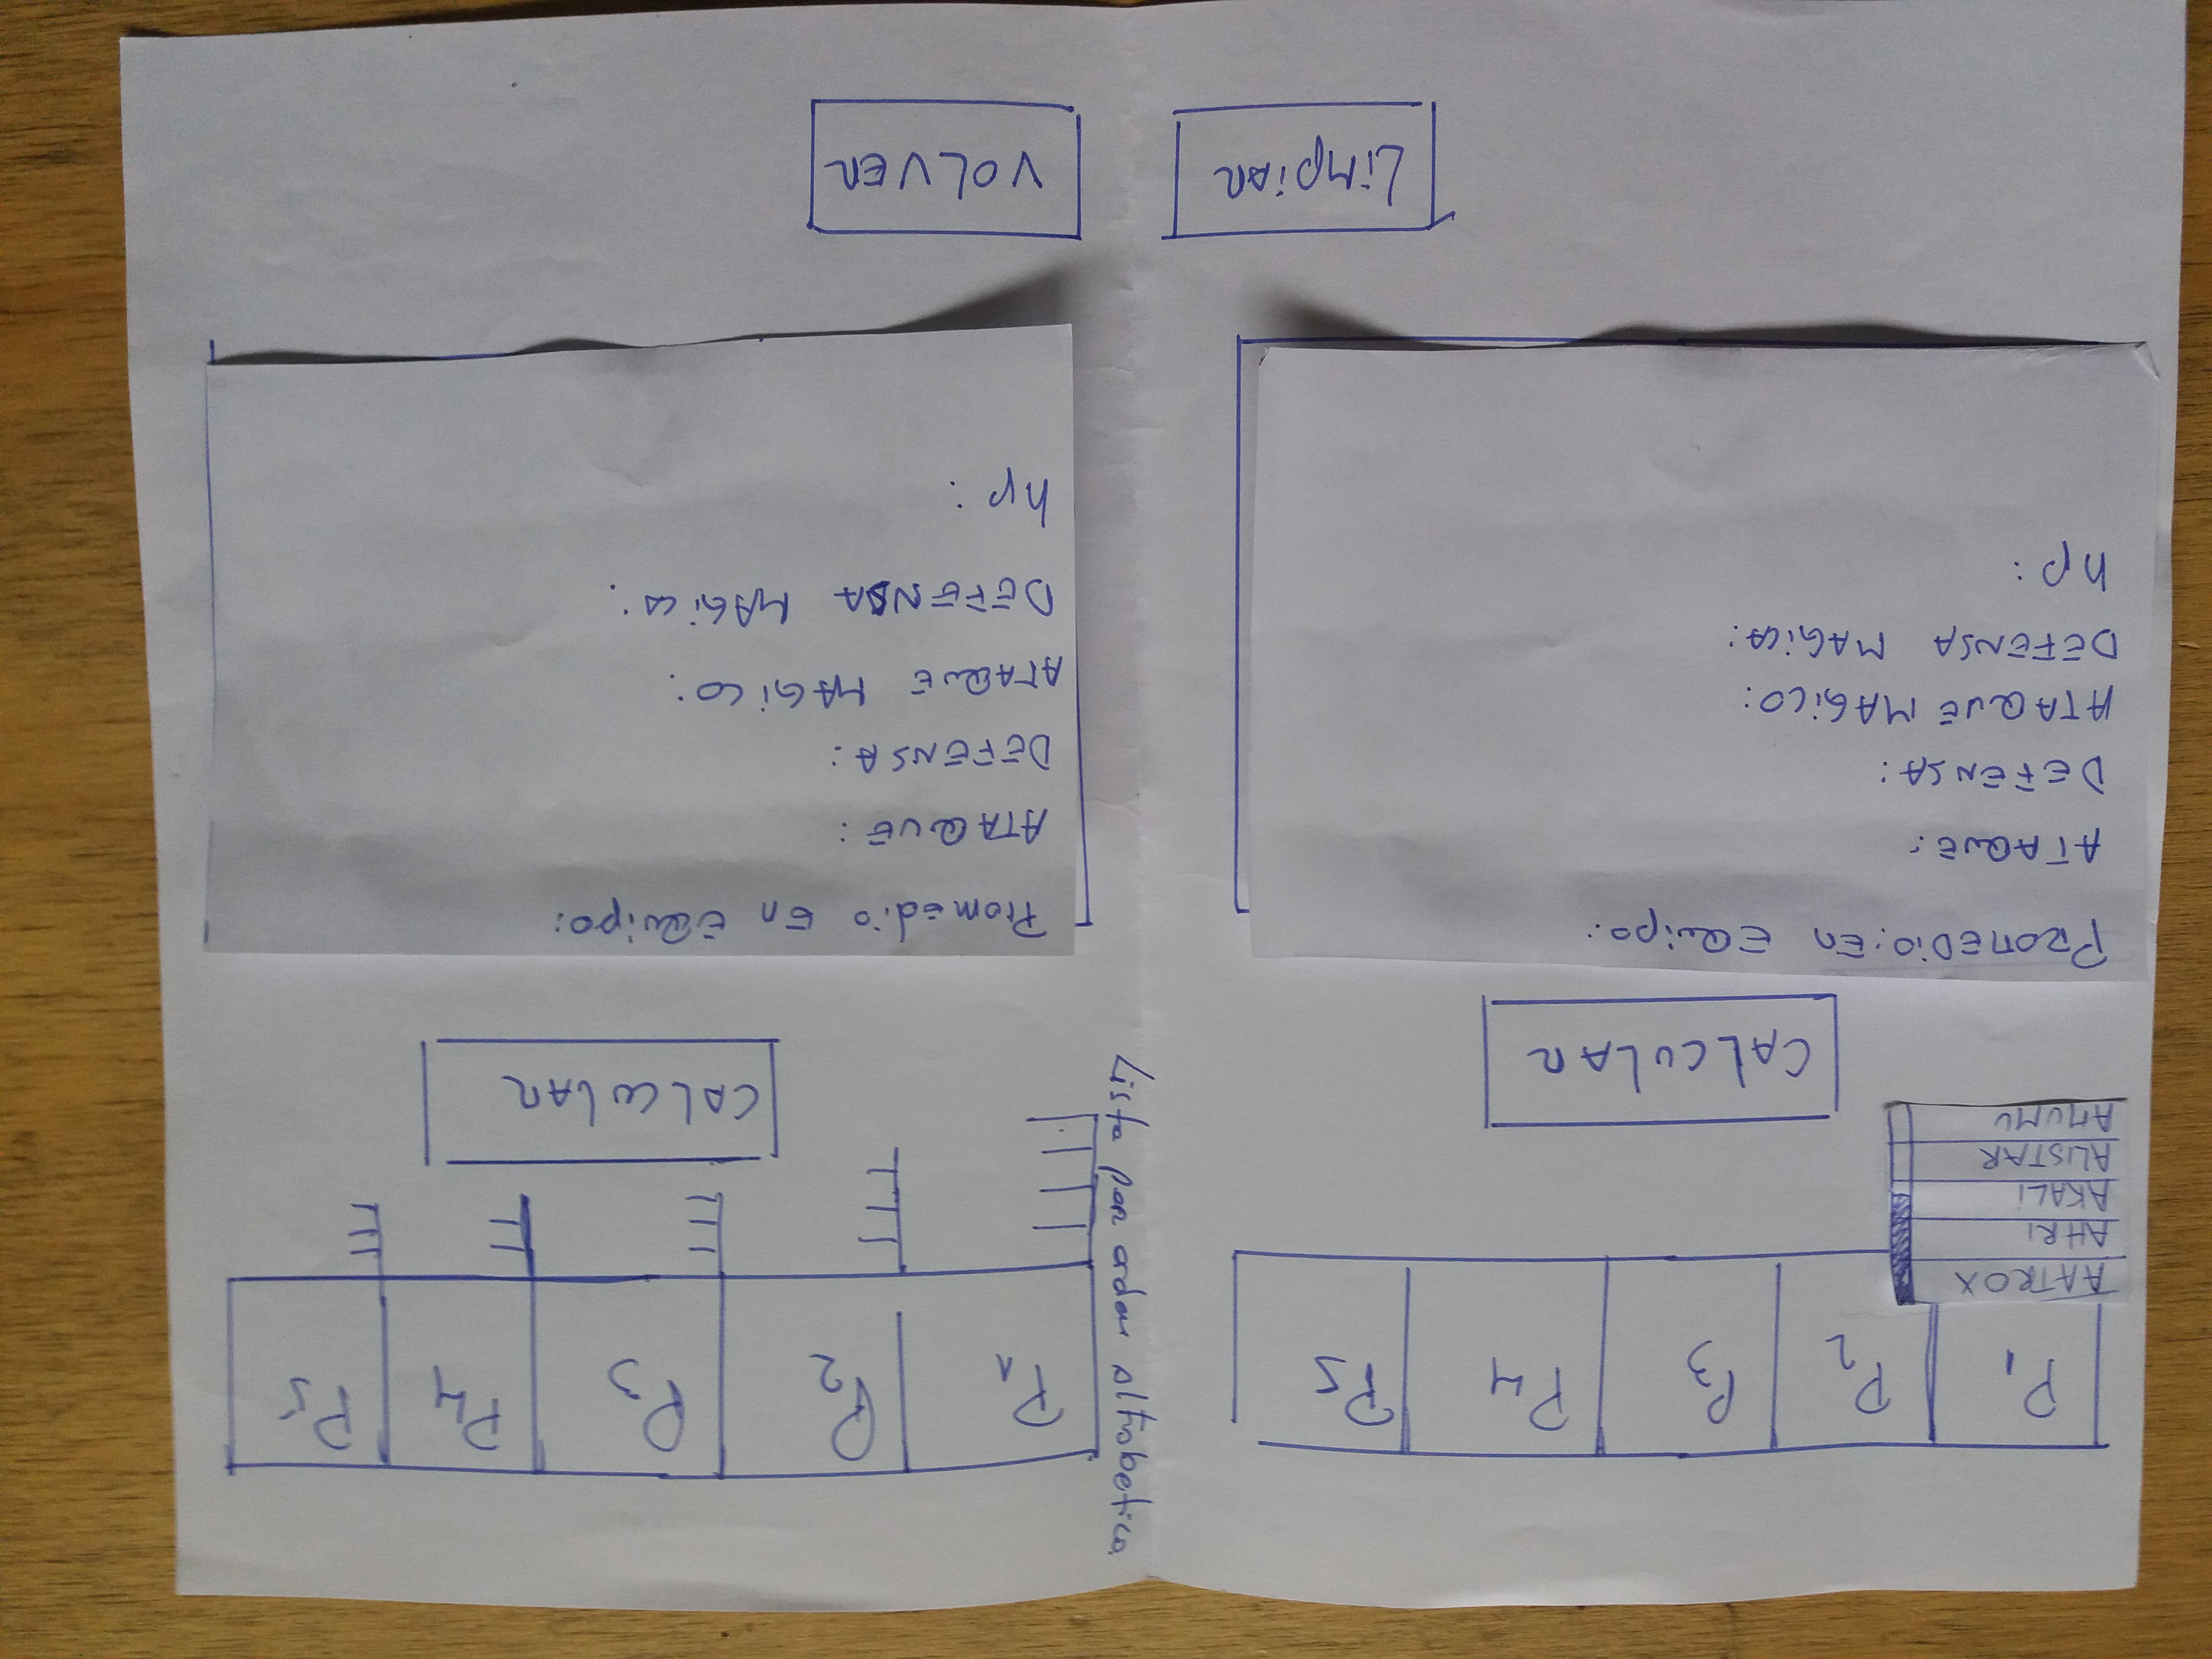 P1 P2 P3 P4 P5
AATROX
AHRI
AKALI
ALISTAR
AMUMU
CALCULAR
PROMEDIO: En EQuipo:
ATAQUE:
DEFENSA:
ATAQUE MAGICO:
DEFENSA MAGICA:
hp:
Lista por orden alfabetico.
P1 P2 P3 P4 P5
CALCULAR
Promedio En EQuipo:
ATAQUE:
DEFENSA:
ATAQUE MAGICO:
DEFENSA MAGICA:
hp:
LiMpiAR
VOLVER